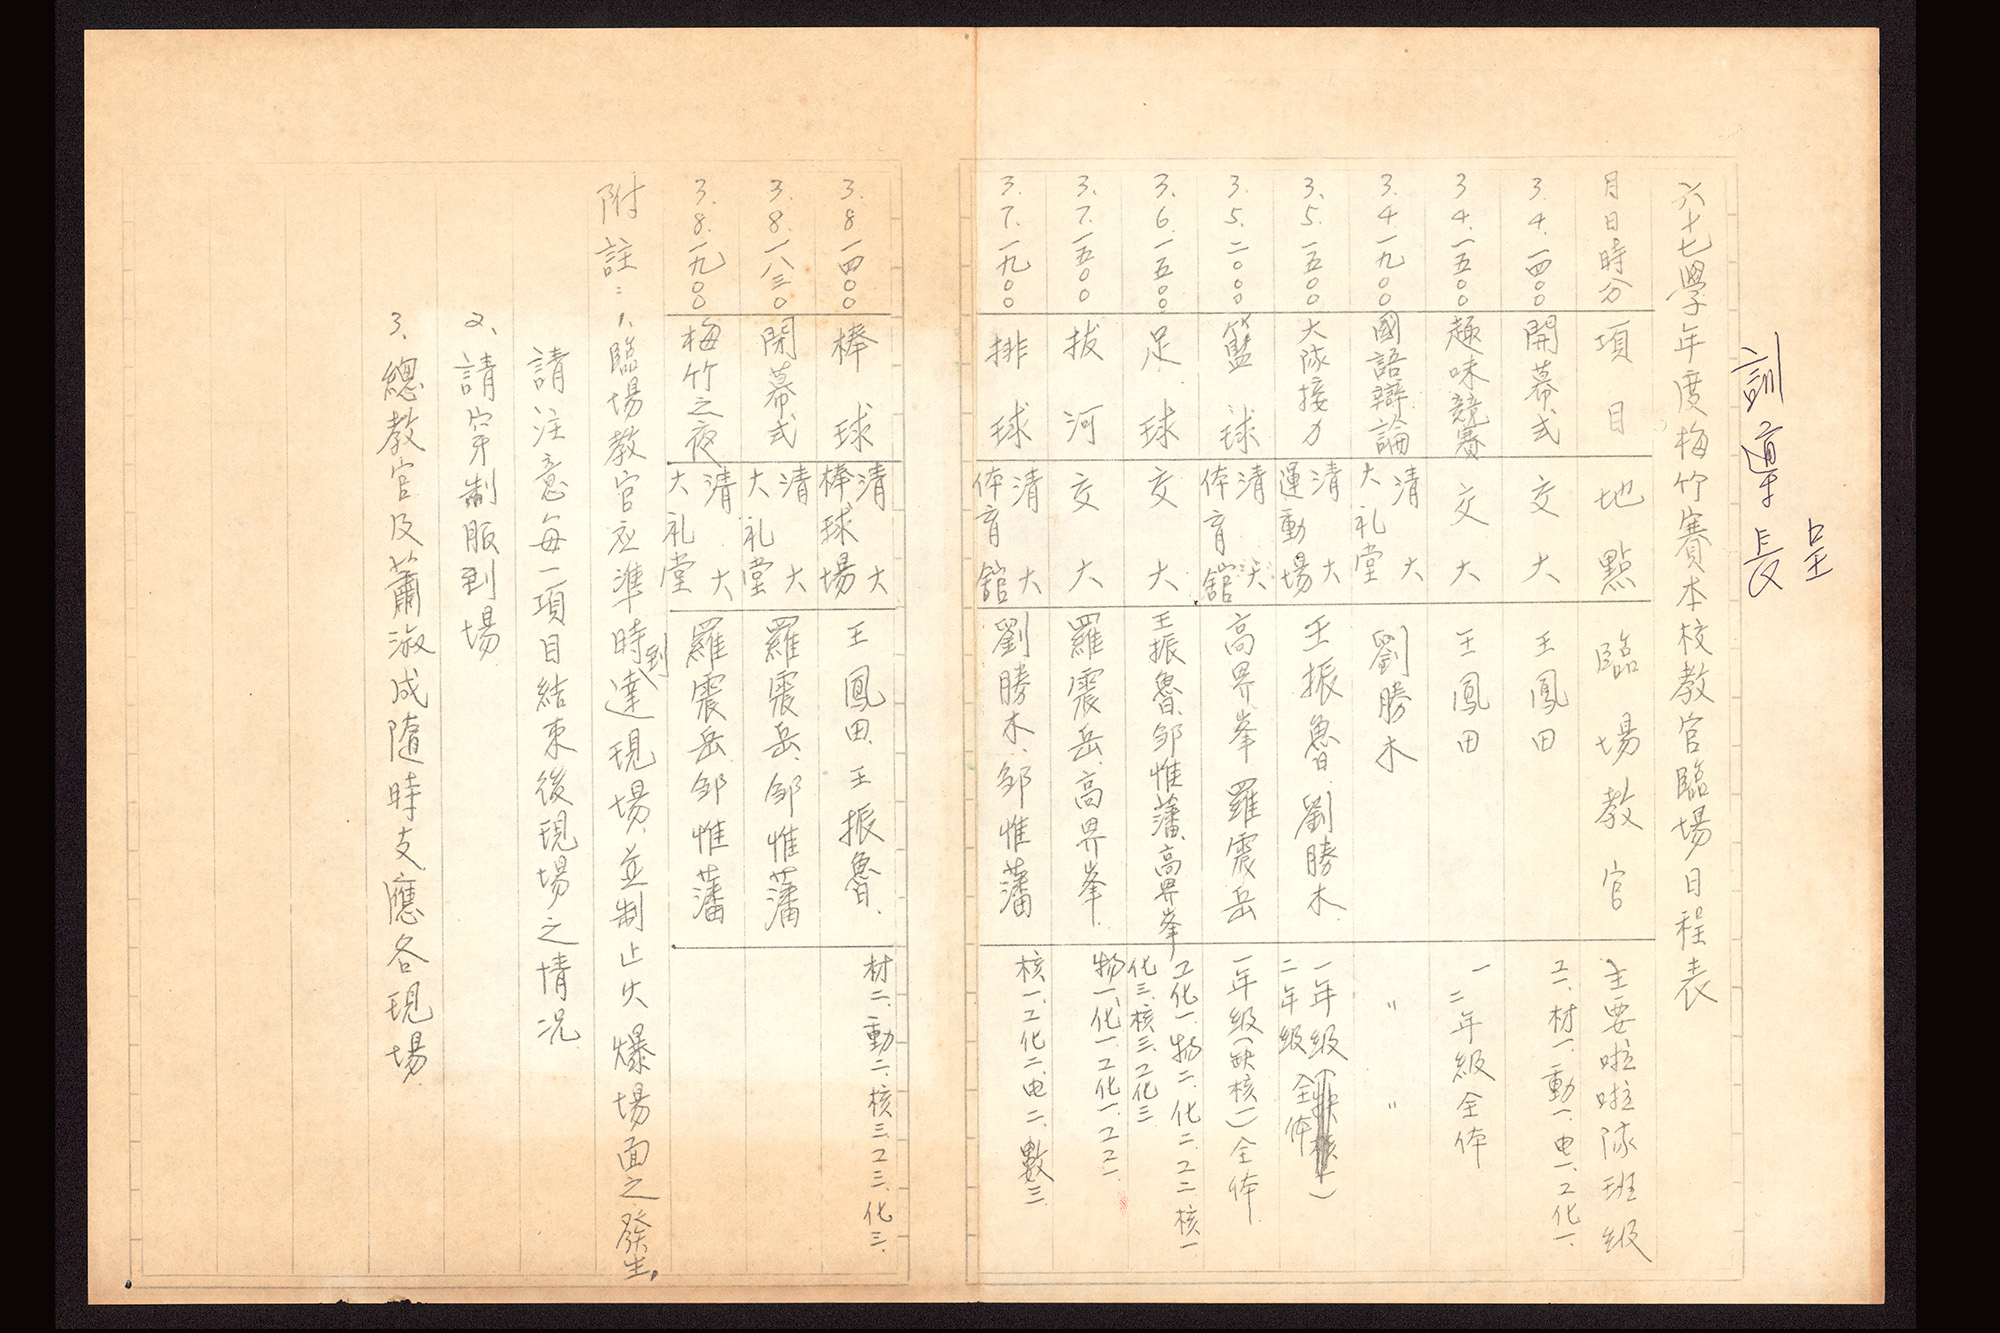 呈
訓導長
六十七學年度梅竹賽本校教官臨場日程表
月日時分 項目 地點 臨場教官 主要啦啦隊班級
3.4.一四〇〇 開幕式 交大 王鳳田 工一、材一、動一、电一、工化一、
3 4.一五〇〇 趣味競賽 交大 王鳳田 一二年級全体
3.4.一九〇〇 國語辯論 清大大礼堂 劉勝木 〃 〃
3.5.一五〇〇 大隊接力 清大運動場 王振魯、劉勝木 一年級二年級全体
3.5.二〇〇〇 籃球 清大体育舘 高昇峯 羅震岳 一年級(缺核一)全体
3.6.一五〇〇 足球 交大 王振魯、邹惟藩、高昇峯 工化一、物二、化二、工二、核一化三、核三、工化三
3.7.一五〇〇 拔河 交大 羅震岳、高昇峯 物一、化一、工化一、工二、
3.7.一九〇〇 排球 清大体育舘 劉勝木、邹惟藩 核一、工化二、电二、數三
3.8一四〇〇 棒球 清大棒球場 王鳳田、王振魯、 材二、動二、核三、工三、化三、
3.8.一八三〇 閉幕式 清大大礼堂 羅震岳、邹惟藩
3.8.一九〇〇 梅竹之夜 清大大礼堂 羅震岳 邹惟藩
附註：1、臨場教官应準時到達現場，並制止火爆場面之發生，
請注意每一項目結束後現場之情况
2、請穿制服到場
3、總教官及蕭淑成隨時支應各現場